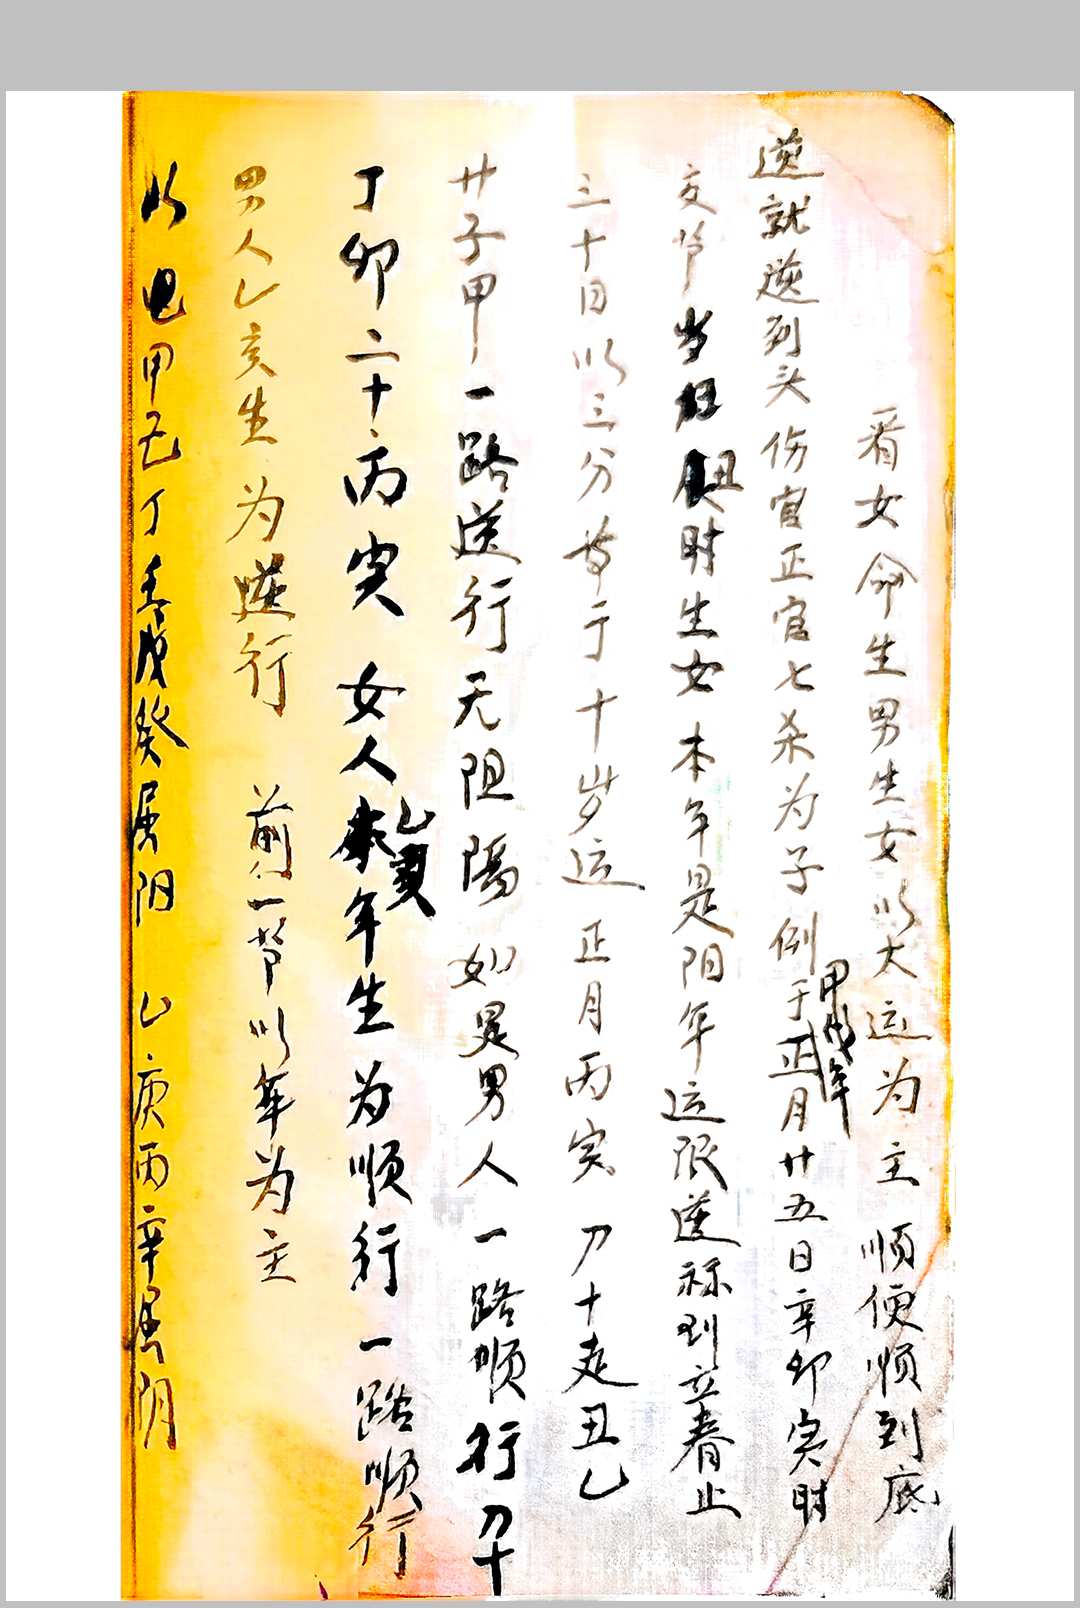 看女命生男生女以大运为主顺便顺到底
逆就逆到头伤官正官七杀为子例于正月廿五日辛卯寅时
甲戌年
交节当在丑时生女本年是阳年运限逆补到立春止
三十日以三分等于十岁运正月丙寅 初十走丑乙
廿子甲一路逆行无阻隔如是男人一路顺行初十
丁卯二十丙寅 女人乙亥年生为顺行一路顺行
男人乙亥生为逆行 前一节以年为主
以 甲己丁壬戊癸属阳 乙庚丙辛属阴